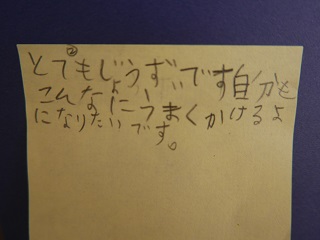 ②
とてもじょうずです自分も
こんなにうまくかけるよ
になりたいです。